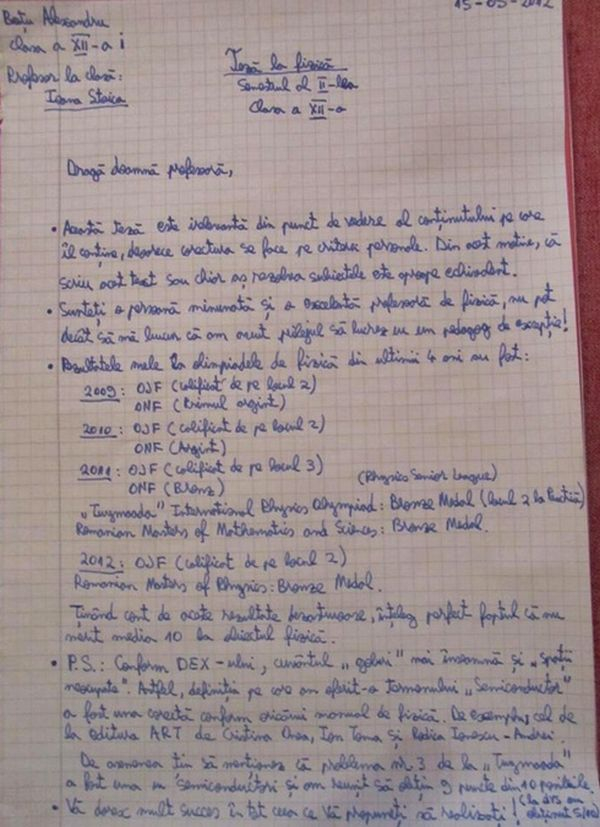 Bratu Alexandru
15-05-2012
Clasa a XII-a i
Profesor la clasă:
Ioana Stoica
Teză la fizică
Semestrul al II-lea
Clasa a XII-a
Dragă doamnă profesoară,
• Această teză este irelevantă din punct de vedere al conținutului pe care
îl conține, deoarece corectura se face pe criterii personale. Din acest motiv, că
scriu acest text sau chiar aș rezolva subiectele este aproape echivalent.
• Sunteți o persoană minunată și o excelentă profesoară de fizică, nu pot
decât să mă bucur că am avut prilejul să lucrez cu un pedagog de excepție!
• Rezultatele mele la olimpiadele de fizică din ultimii 4 ani au fost:
2009: OJF (calificat de pe locul 2)
ONF (Primul argint)
2010: OJF (calificat de pe locul 2)
ONF (Argint)
2011: OJF (calificat de pe locul 3)
ONF (Bronz) (Physics Senior League)
„Tuymaada" International Physics Olympiad: Bronze Medal (locul 2 la Practică)
Romanian Masters of Mathematics and Sciences: Bronze Medal.
2012: OJF (calificat de pe locul 2)
Romanian Masters of Physics: Bronze Medal.
Ținând cont de aceste rezultate dezastruoase, înțeleg perfect faptul că nu
merit media 10 la obiectul fizică.
• P.S.: Conform DEX-ului, cuvântul „goluri" mai înseamnă și „spații
neocupate". Astfel, definiția pe care am oferit-o termenului „Semiconductor"
a fost una corectă conform oricărui manual de fizică. De exemplu, cel de
la editura ART de Cristina Onea, Ion Toma și Rodica Ionescu-Andrei.
De asemenea țin să menționez că problema nr. 3 de la „Tuymaada"
a fost una cu semiconductori și am reușit să obțin 9 puncte din 10 posibile.
(la dvs am
• Vă doresc mult succes în tot ceea ce Vă propuneți să realizați! obținut 5/10)